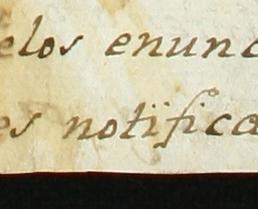 elos enunc
es notifica